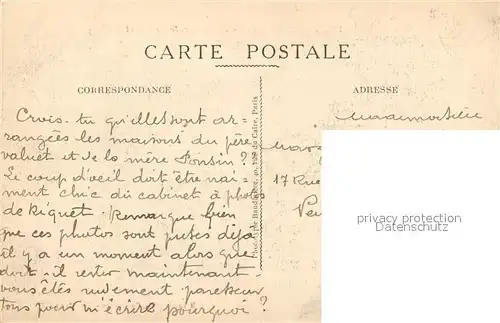 CARTE POSTALE
CORRESPONDANCE
ADRESSE
Crois-tu qu'elles sont ar-
rangées les maisons du père
valuet et de la mère Ponsin ?
Le coup d'oeil doit être vrai-
ment chic du cabinet à photos
de Riquet. Remarque bien
que ces photos sont prises déjà
il y a un moment alors que
doit-il rester maintenant
vous êtes rudement paresseux
tous pour m'écrire pourquoi ?
Mademoiselle
17 Rue
du Caire, Paris
Privacy protection
oldthing.de